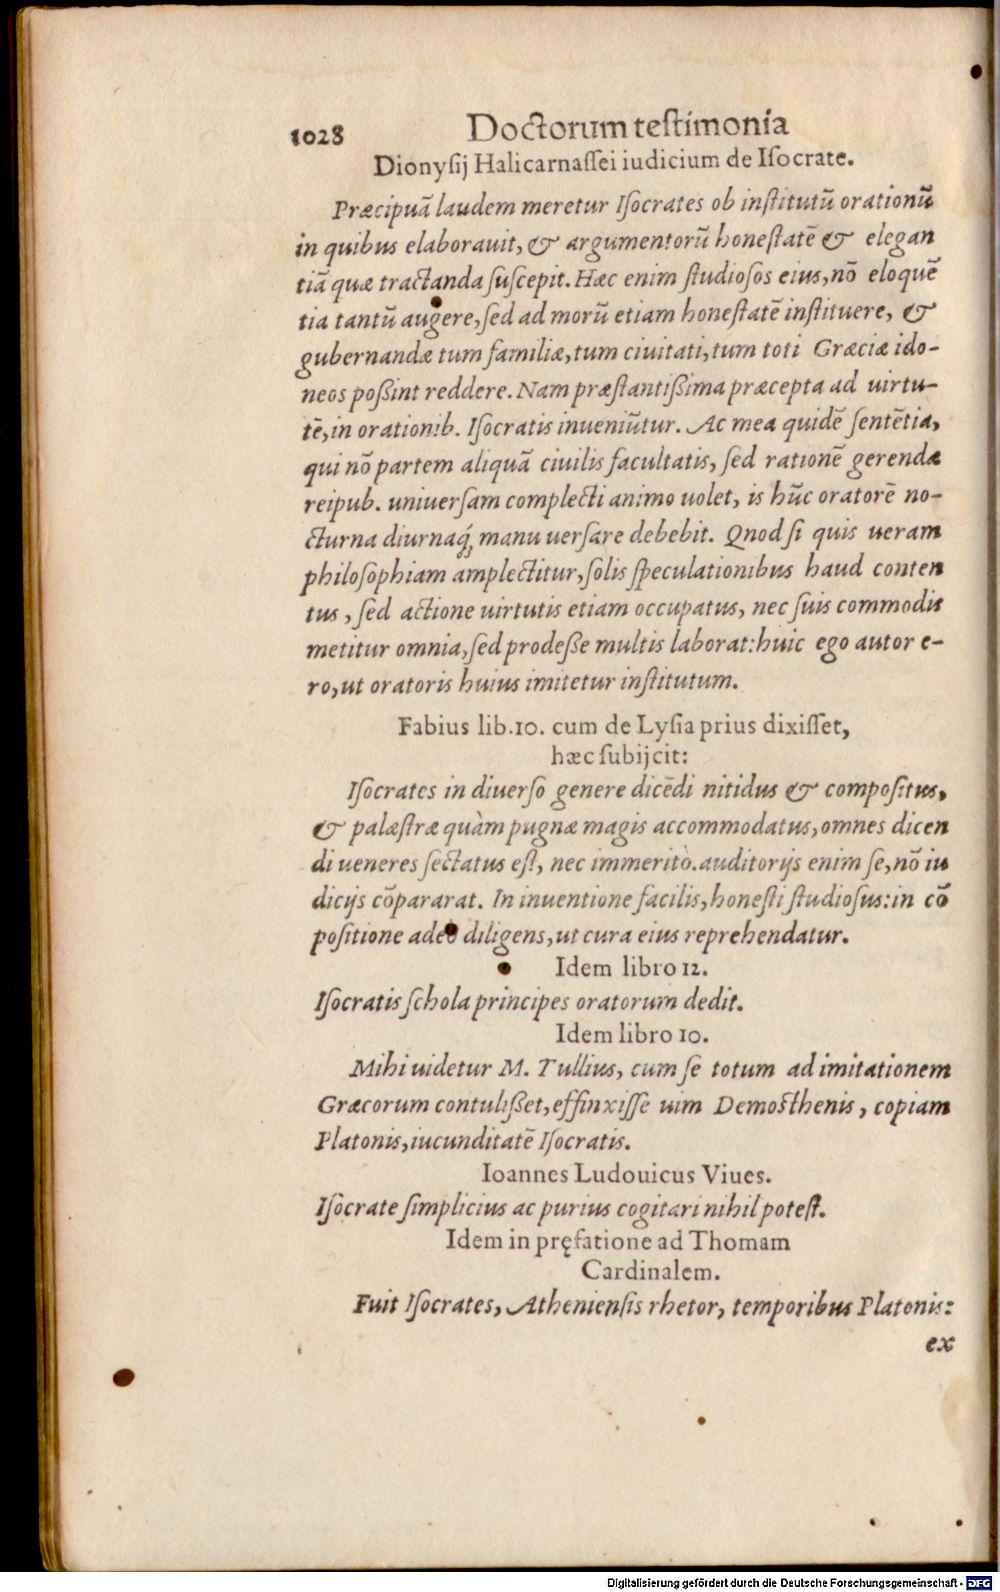 1028 Doctorum testimonia
Dionysij Halicarnassei iudicium de Isocrate.
Præcipuā laudem meretur Isocrates ob institutū orationū
in quibus elaborauit, & argumentorū honestatē & elegan
tiā quæ tractanda suscepit. Hæc enim studiosos eius, nō eloquē
tia tantū augere, sed ad morū etiam honestatē instituere, &
gubernandæ tum familiæ, tum ciuitati, tum toti Græciæ ido-
neos possint reddere. Nam præstantissima præcepta ad uirtu-
tē, in orationib. Isocratis inueniūtur. Ac mea quidē sentētia,
qui nō partem aliquā ciuilis facultatis, sed rationē gerendæ
reipub. uniuersam complecti animo uolet, is hūc oratorē no-
cturna diurnaq́; manu uersare debebit. Qnod si quis ueram
philosophiam amplectitur, solis speculationibus haud conten
tus, sed actione uirtutis etiam occupatus, nec suis commodis
metitur omnia, sed prodesse multis laborat: huic ego autor e-
ro, ut oratoris huius imitetur institutum.
Fabius lib. 10. cum de Lysia prius dixisset,
hæc subijcit:
Isocrates in diuerso genere dicēdi nitidus & compositus,
& palæstræ quàm pugnæ magis accommodatus, omnes dicen
di ueneres sectatus est, nec immeritò. auditorijs enim se, nō iu
dicijs cōpararat. In inuentione facilis, honesti studiosus: in cō
positione adeo diligens, ut cura eius reprehendatur.
Idem libro 12.
Isocratis schola principes oratorum dedit.
Idem libro 10.
Mihi uidetur M. Tullius, cum se totum ad imitationem
Græcorum contulisset, effinxisse uim Demosthenis, copiam
Platonis, iucunditatē Isocratis.
Ioannes Ludouicus Viues.
Isocrate simplicius ac purius cogitari nihil potest.
Idem in pręfatione ad Thomam
Cardinalem.
Fuit Isocrates, Atheniensis rhetor, temporibus Platonis:
ex
Digitalisierung gefördert durch die Deutsche Forschungsgemeinschaft - DFG